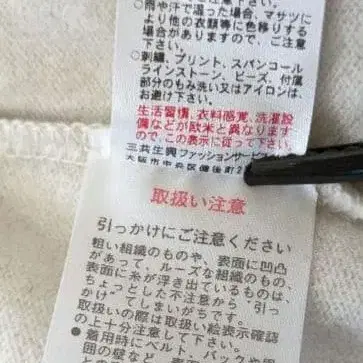 ○雨や汗で湿った場合、マサツに
より他の衣類等に色移りする
場合がありますので、ご注意
下さい。
○刺繍、プリント、スパンコール
ラインストーン、ビーズ、付属
部分のもみ洗い又はアイロンは
お避け下さい。
生活習慣、衣料感覚、洗濯設
備などが欧米と異なります
ので、この表示に従って下さい。
三共生興ファッションサービス
大阪市中央区備後町2
取扱い注意
引っかけにご注意ください
粗い組織のものや、表面に凹凸
があって、ルーズな組織のもの、
表面に糸が浮き出ているものは、
ちょっとした不注意から“引っ
かけ”てしまいがちです。
取扱いの際は取扱い絵表示確認
の上十分注意して下さい。
●着用時にベルト、バックや周
囲の壁など、表面